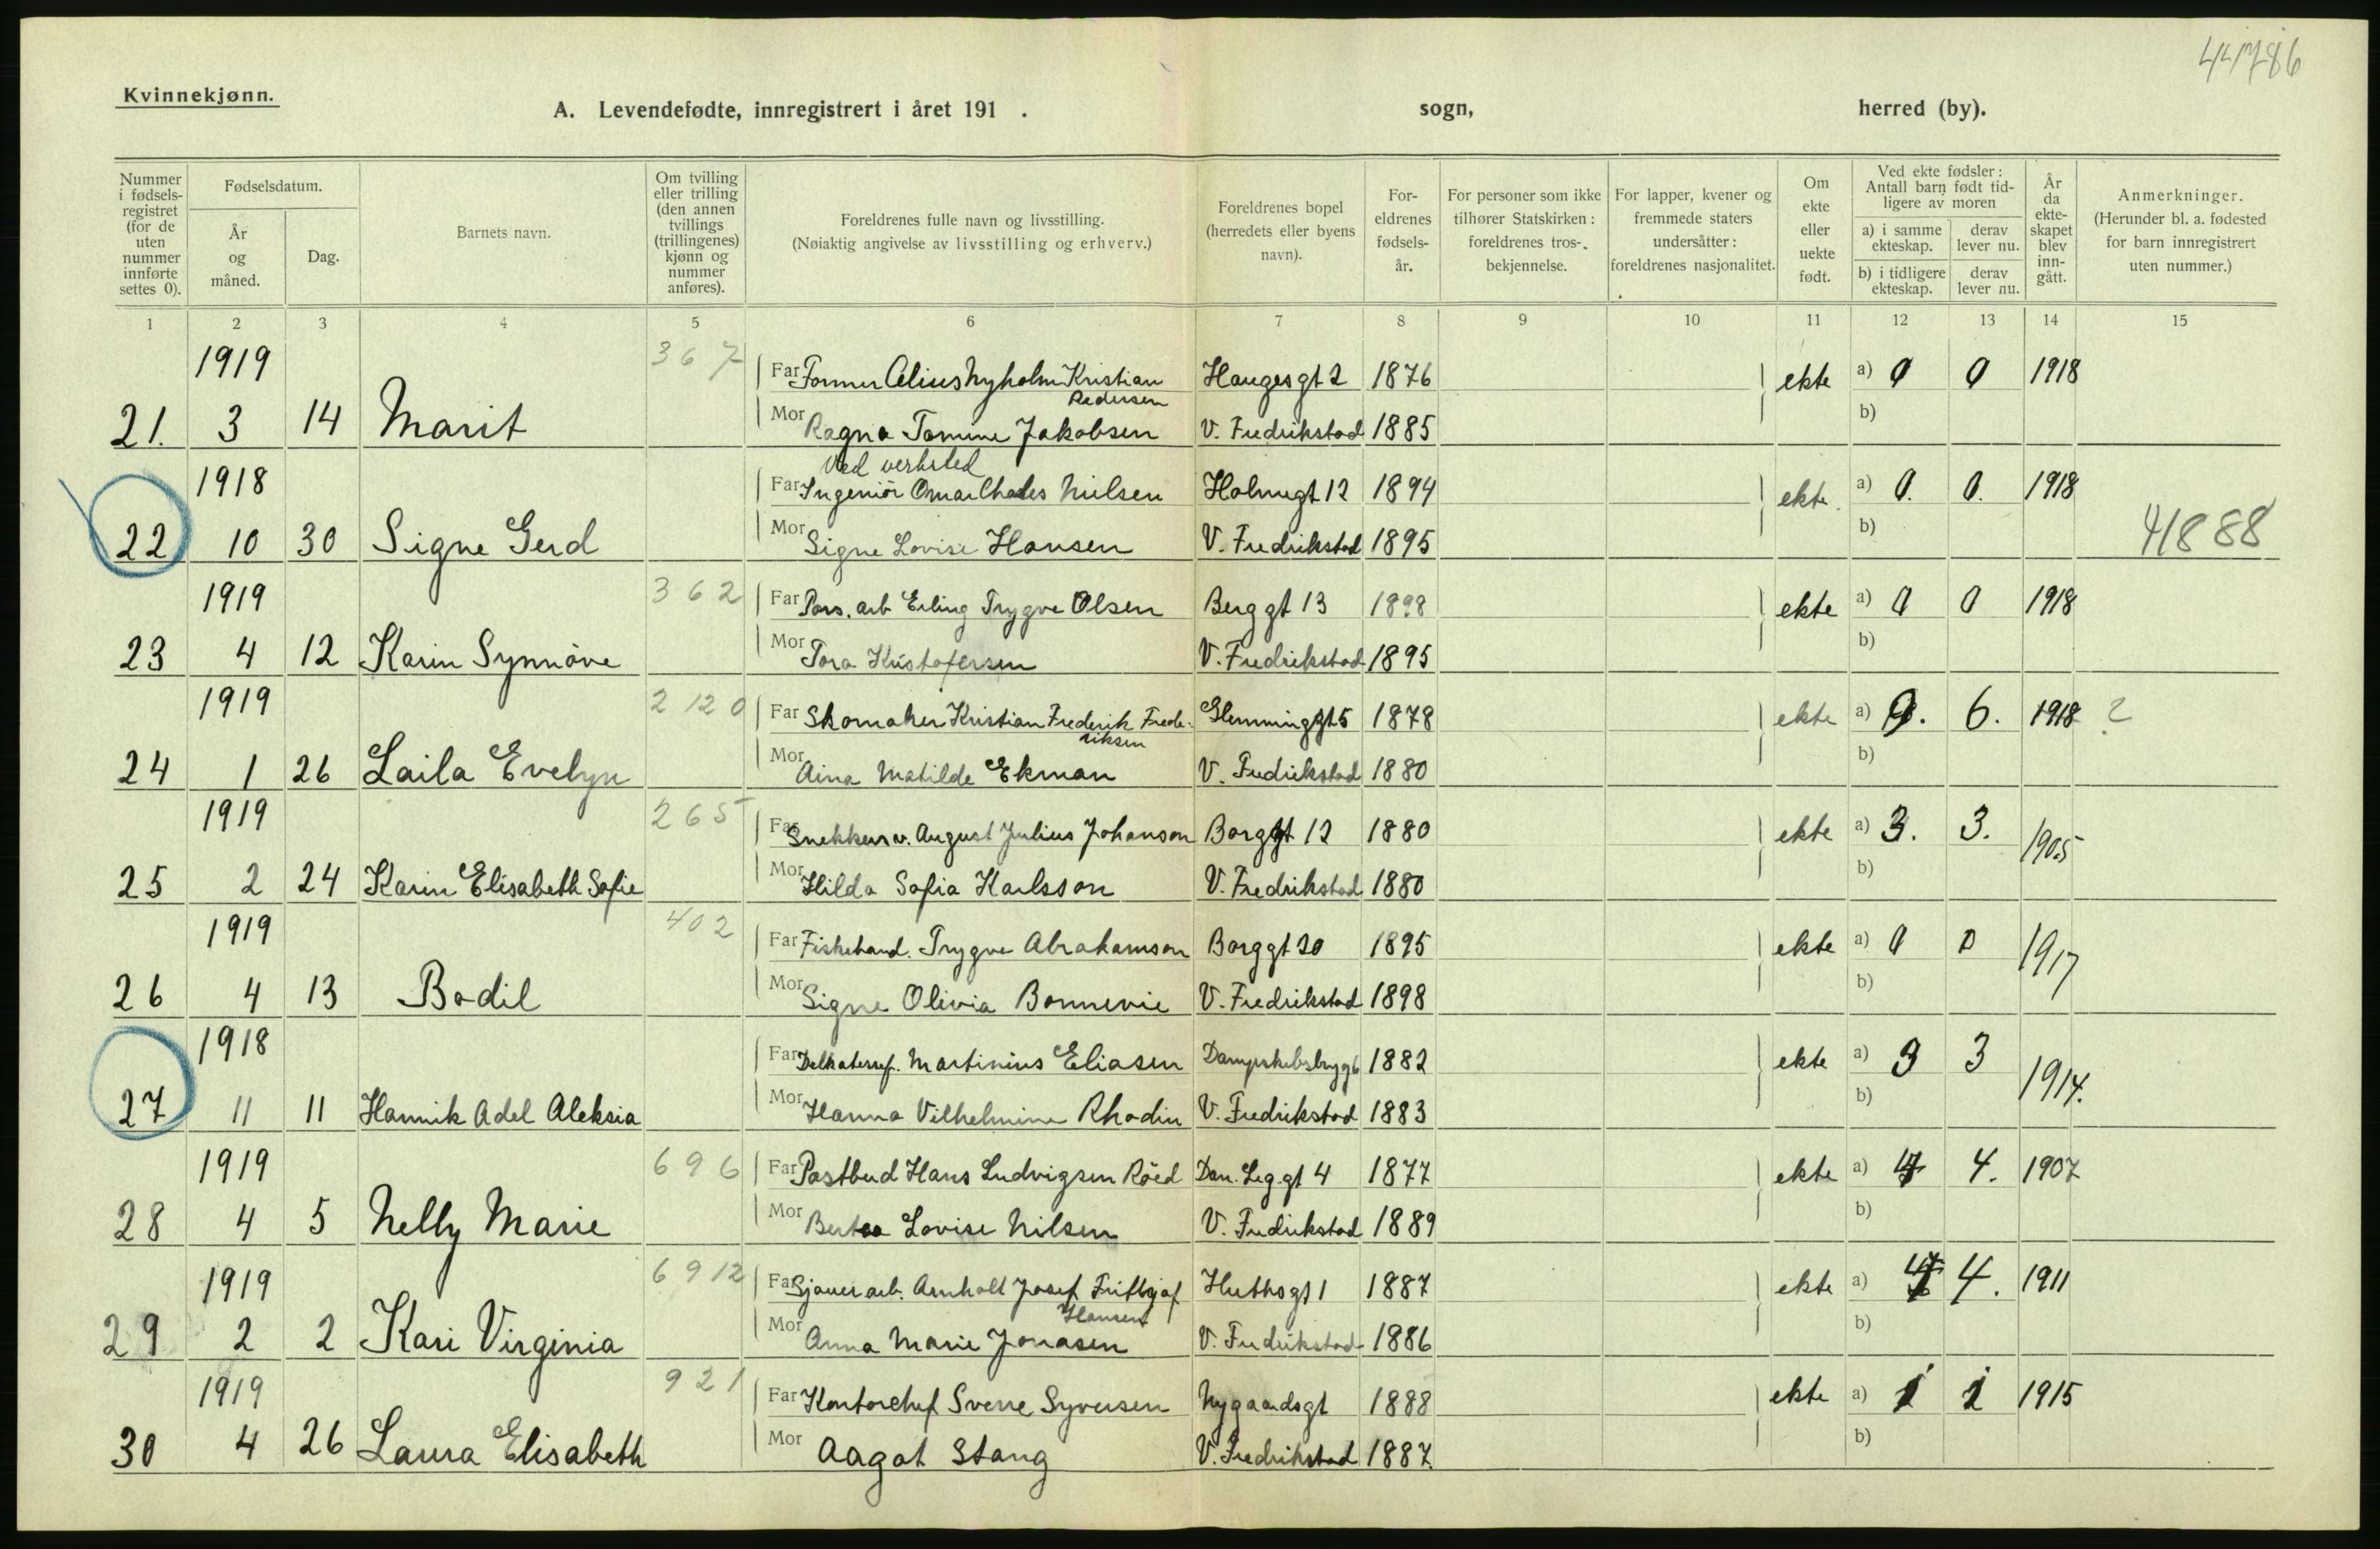 44786
Kvinnekjønn.
A. Levendefødte, innregistrert i året 191 . sogn, herred (by).
Nummer i fødsels-registret (for de uten nummer innførte settes 0).
Fødselsdatum.
År og måned.
Dag.
Barnets navn.
Om tvilling eller trilling (den annen tvillings (trillingenes) kjønn og nummer anføres).
Foreldrenes fulle navn og livsstilling.
(Nøiaktig angivelse av livsstilling og erhverv.)
Foreldrenes bopel (herredets eller byens navn).
For-eldrenes fødsels-år.
For personer som ikke tilhører Statskirken: foreldrenes tros-bekjennelse.
For lapper, kvener og fremmede staters undersåtter: foreldrenes nasjonalitet.
Om ekte eller uekte født.
Ved ekte fødsler: Antall barn født tid-ligere av moren
a) i samme ekteskap.
derav lever nu.
b) i tidligere ekteskap.
derav lever nu.
År da ekte-skapet blev inn-gått.
Anmerkninger.
(Herunder bl. a. fødested for barn innregistrert uten nummer.)
1 2 3 4 5 6 7 8 9 10 11 12 13 14 15
1919 367 Far Former Celius Nyholm Kristian Pedersen Hauges gt 2 1876 ekte a) 0 0 1918
21. 3 14 Marit Mor Ragna Tomine Jakobsen V. Fredrikstad 1885 b)
Ved verksted
1918 Far Ingeniör Omar Charles Nielsen Holmegt 12 1894 ekte. a) 0. 0. 1918
22 10 30 Signe Gerd Mor Signe Lovise Hansen V. Fredrikstad 1895 b) 41888
1919 362 Far Pors. arb Erling Trygve Olsen Berg gt 13 1898 ekte a) 0 0 1918
23 4 12 Karin Synnöve Mor Tora Kristofersen V. Fredrikstad 1895 b)
1919 2 12 0 Far Skomaker Kristian Frederik Frederiksen Glemminggt 5 1878 ekte a) 9. 6. 1918 ?
24 1 26 Laila Evelyn Mor Aina Matilde Ekman V. Fredrikstad 1880 b)
1919 265 Far Snekkersv. August Julius Johanson Borggt 12 1880 ekte a) 3. 3. 1905
25 2 24 Karin Elisabeth Sofie Mor Hilda Sofia Karlsson V. Fredrikstad 1880 b)
1919 402 Far Fiskehand. Trygve Abrahamson Borggt 20 1895 ekte a) 0 0 1917
26 4 13 Bodil Mor Signe Olivia Bonnevie V. Fredrikstad 1898 b)
1918 Far Delikatessef. Martinius Eliasen Dampskibsbrygg 1882 ekte a) 3 3 1914.
27 11 11 Hannik Adel Aleksia Mor Hanna Vilhelmine Rhodin V. Fredrikstad 1883 b)
1919 696 Far Postbud Hans Ludvigsen Röed Dan. Leg. gt 4 1877 ekte a) 4 4. 1907
28 4 5 Nelly Marie Mor Lovise Nilsen V. Fredrikstad 1889 b)
1919 6912 Far Sjauerarb. Arnholt Josef Frithjof Hansen Huthsgt 1 1887 ekte a) 4 4. 1911
29 2 2 Kari Virginia Mor Anna Marie Jonasen V. Fredrikstad 1886 b)
1919 921 Far Kontorchef Sverre Syversen Nygaardsgt 1888 ekte a) 1 1 1915
30 4 26 Laura Elisabeth Mor Aagot Stang V. Fredrikstad 1887. b)